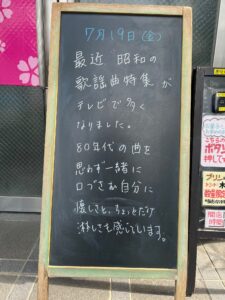 7月19日(金)
最近 昭和の
歌謡曲特集が
テレビで多く
なりました。
80年代の曲を
思わず一緒に
口づさむ自分に
懐しさと、ちょっとだけ
淋しさも感じています。
こちらの
ボタン
押して